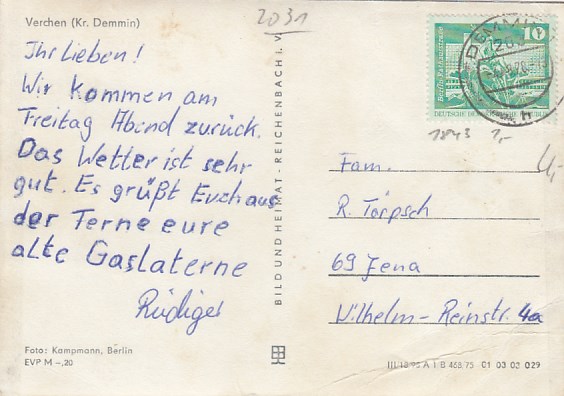 Verchen (Kr. Demmin)
2031
Ihr Lieben!
Wir kommen am
Freitag Abend zurück.
Das Wetter ist sehr
gut. Es grüßt Euch aus
der Ferne eure
alte Gaslaterne
Rüdiger
Foto: Kampmann, Berlin
EVP M –,20
BILD UND HEIMAT · REICHENBACH I. V.
10
Berlin, Rathausstraße
DEUTSCHE DEMOKRATISCHE REPUBLIK
DEMMIN
h
1843 1,-
4,-
Fam.
R. Törpsch
69 Jena
Wilhelm-Reinstr. 4a
III/18/95 A 1 B 468/75 01 03 03 029